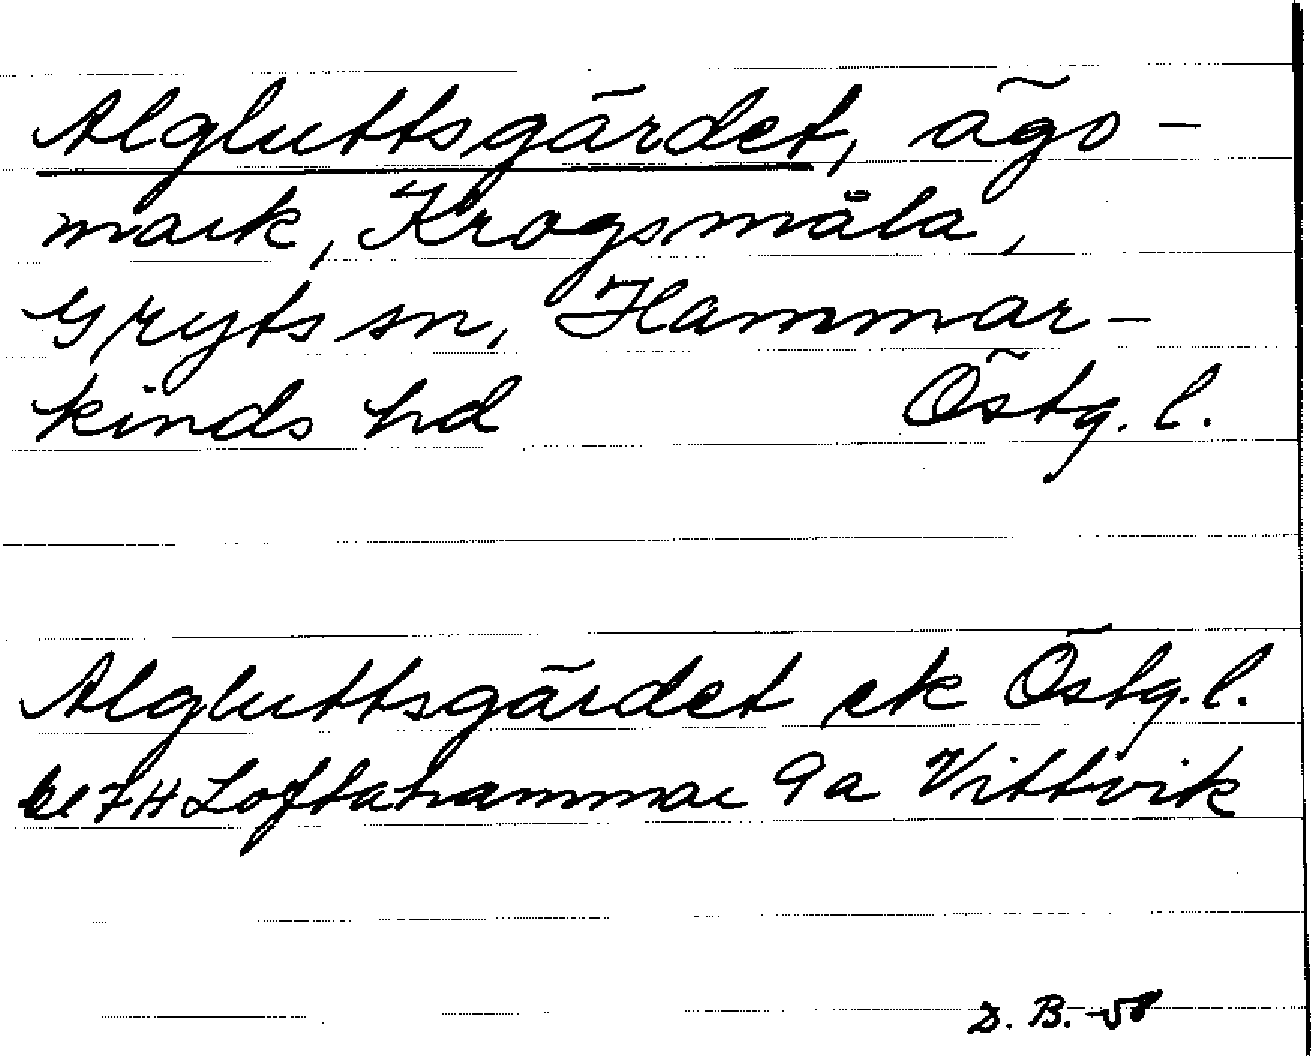 Algluttsgärdet, ägo-
mark, Krogsmåla,
Gryts sn, Hammar-
kinds hd Östg. l.
Algluttsgärdet ek Östg. l.
bl 7H Loftahammar 9a Vittvik
D. B. -58